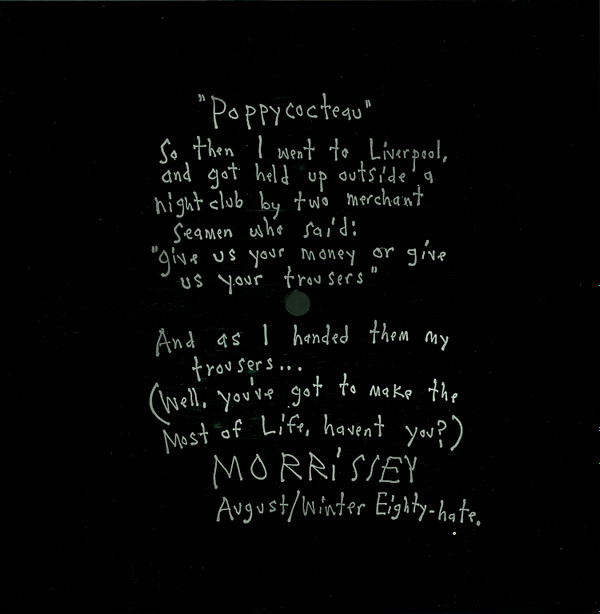 "Poppycocteau"
So then I went to Liverpool,
and got held up outside a
nightclub by two merchant
seamen who said:
"give us your money or give
us your trousers"
And as I handed them my
trousers...
(Well, you've got to make the
Most of Life, havent you?)
MORRiSSEY
August/Winter Eighty-hate.